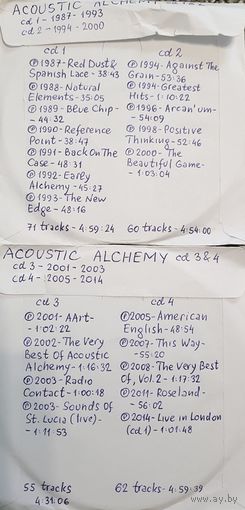 ACOUSTIC ALCHEMY
cd 1 - 1987-1993
cd 2 - 1994-2000
cd 1
℗ 1987-Red Dust &
Spanish Lace - 38:43
℗ 1988-Natural
Elements - 35:05
℗ 1989-Blue Chip -
- 44:32
℗ 1990-Reference
Point - 38:47
℗ 1991-Back On The
Case - 48:31
℗ 1992-Early
Alchemy - 45:27
℗ 1993-The New
Edge - 48:16
71 tracks - 4:59:24
cd 2
℗ 1994-Against The
Grain - 53:36
℗ 1994-Greatest
Hits - 1:10:22
℗ 1996-Arcan'um -
- 54:09
℗ 1998-Positive
Thinking - 52:46
℗ 2000-The
Beautiful Game -
- 1:03:04
60 tracks - 4:54:00
ACOUSTIC ALCHEMY cd 3&4
cd 3 - 2001-2003
cd 4 - 2005-2014
cd 3
℗ 2001-AArt -
- 1:02:22
℗ 2002-The Very
Best Of Acoustic
Alchemy - 1:16:32
℗ 2003-Radio
Contact - 1:00:18
℗ 2003-Sounds Of
St. Lucia (live) -
- 1:11:53
55 tracks
4:31:06
cd 4
℗ 2005-American
English - 48:54
℗ 2007-This Way -
- 55:20
℗ 2008-The Very Best
Of, Vol. 2 - 1:17:32
℗ 2011-Roseland -
- 56:02
℗ 2014-Live in London
(cd 1) - 1:01:48
62 tracks - 4:59:39
ay.by